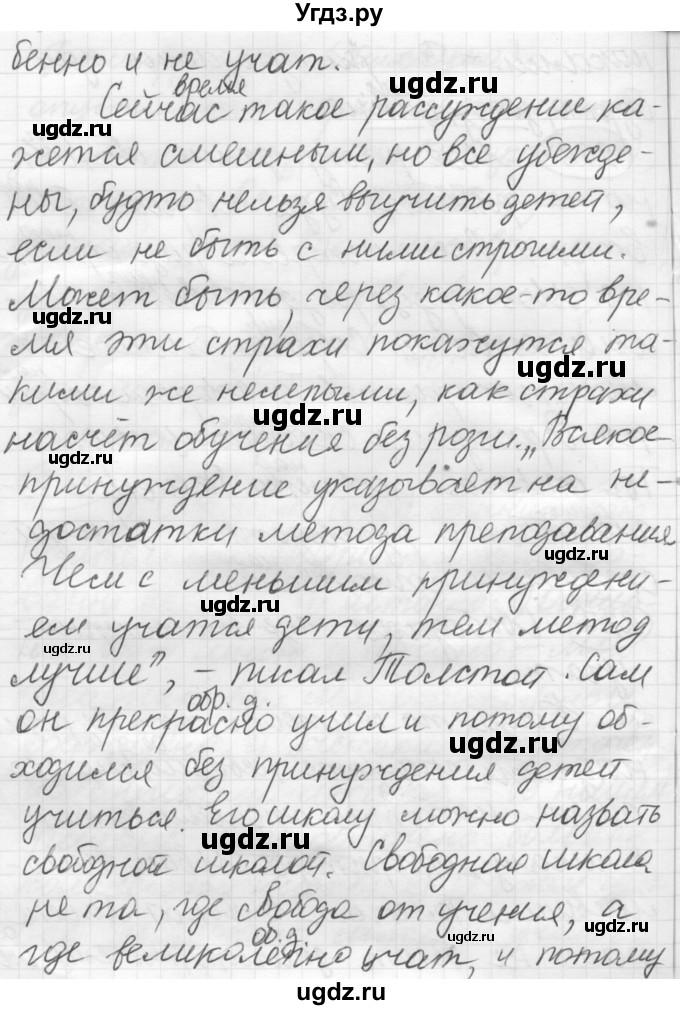 Угдз.ру
бенно и не учат.
время
Сейчас такое рассуждение ка-
ugdz.ru ugdz.ru
жется смешным, но все убежде-
ugdz.ru
ны, будто нельзя выучить детей,
ugdz.ru
если не быть с ними строгими.
Может быть, через какое-то вре-
ugdz.ru
мя эти страхи покажутся та-
ugdz.ru
кими же нелепыми, как страхи
ugdz.ru
насчёт обучения без розги. „Всякое
ugdz.ru
принуждение указывает на не-
достатки метода преподавания.
ugdz.ru
Чем с меньшим принуждени-
ugdz.ru
ем учатся дети, тем метод
ugdz.ru
лучше”, – писал Толстой. Сам
обр. д.
он прекрасно учил и потому об-
ugdz.ru
ходился без принуждения детей
учиться. Его школу можно назвать
ugdz.ru
свободной школой. Свободная школа
не та, где свобода от учения, а
ugdz.ru
об. д.
где великолепно учат, и потому
ugdz.ru
ugdz.ru